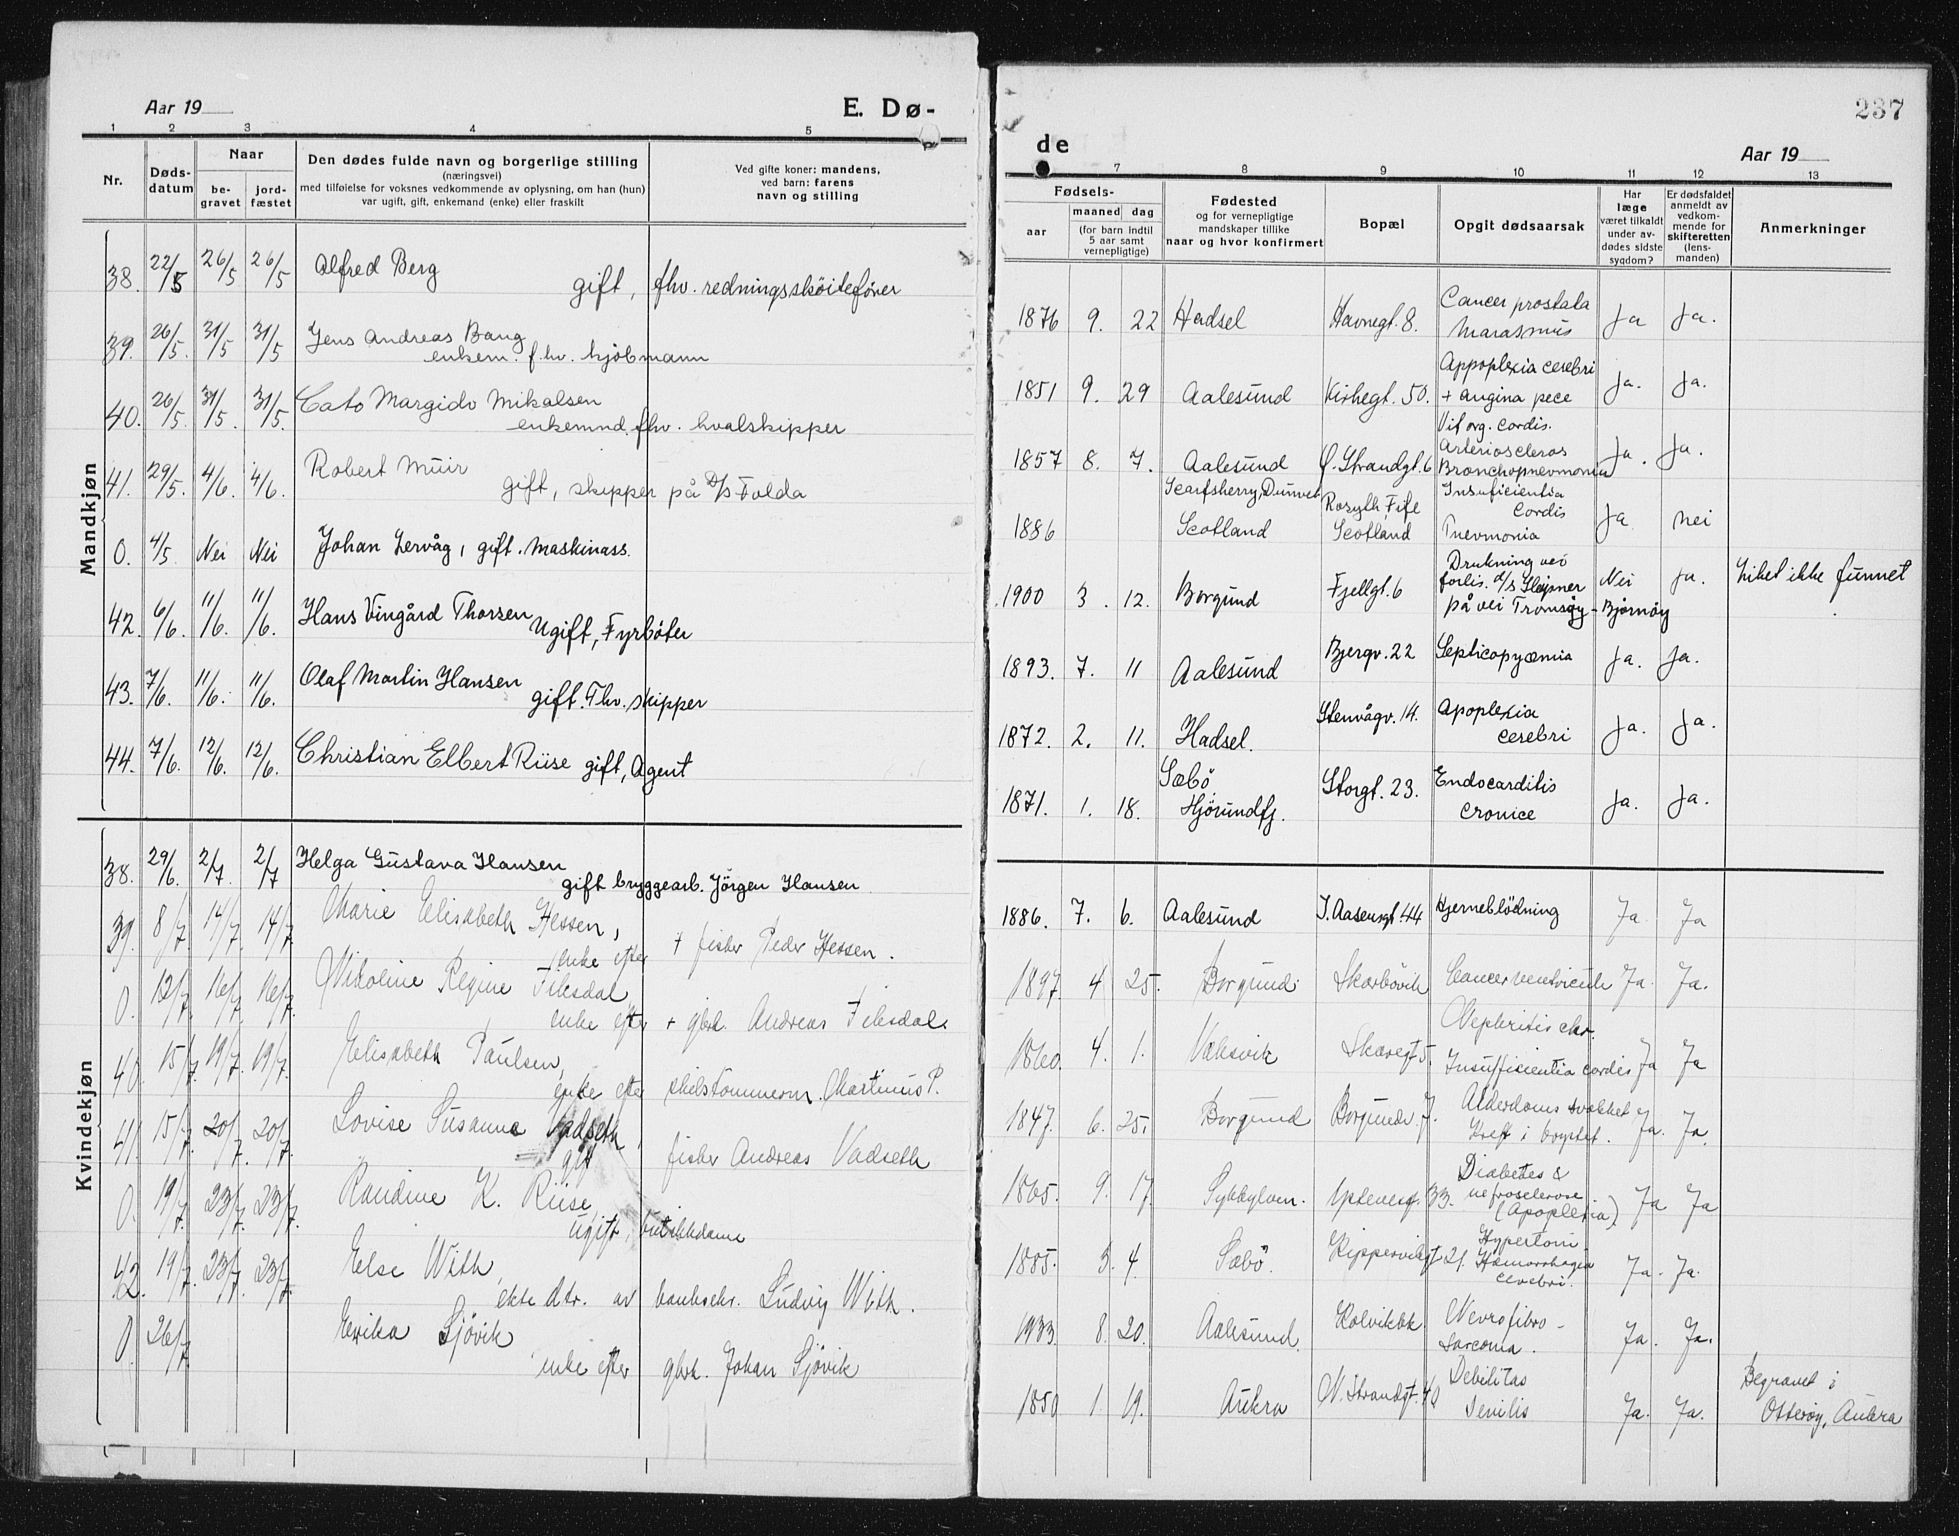 Aar 19
E. Dø-
1 2 3 4 5
Nr.
Døds-
datum
Naar
be-
gravet
jord-
fæstet
Den dødes fulde navn og borgerlige stilling
(næringsvei)
med tilføielse for voksnes vedkommende av oplysning, om han (hun)
var ugift, gift, enkemand (enke) eller fraskilt
Ved gifte koner: mandens,
ved barn: farens
navn og stilling
Mandkjøn
38. 22/5 26/5 26/5 Alfred Berg
gift, fhv. redningsskøitefører
39. 26/5. 31/5 31/5 Jens Andreas Bang
enkem. fhv. kjøbmann
40. 26/5. 31/5. 31/5. Cato Margido Mikalsen
enkemnd. fhv. hvalskipper
41. 29/5. 4/6. 4/6. Robert Muir
gift, skipper på D/S Folda
0. 4/5 Nei Nei Johan Lervåg, gift. Maskinass.
42. 6/6. 11/6. 11/6. Hans Vingård Thorsen
Ugift, Fyrbøter
43. 7/6. 11/6. 11/6. Olaf Martin Hansen
gift. Fhv. skipper
44. 7/6. 12/6. 12/6. Christian Elbert Riise gift, Agent
Kvindekjøn
38. 29/6. 2/7. 2/7 Helga Gustava Hansen
gift bryggearb. Jörgen Hansen
39. 8/7. 14/7. 14/7. Marie Elisabeth Hessen,
enke efter + fisker Peder Hessen.
0. 12/7. 16/7. 16/7. Nikoline Regine Fiksdal
enke efter + gbrk. Andreas Fiksdal.
40. 15/7. 19/7. 19/7. Elisabeth Paulsen,
enke efter skibstømmerm. Martinus P.
41. 15/7. 20/7. 20/7. Lovise Susanne Vadseth,
gift fisker Andreas Vadseth
0. 19/7. 23/7. 23/7. Randine K. Riise,
ugift, butikkdame
42. 19/7. 23/7. 23/7. Else With,
ekte dtr. av banksekr. Ludvig With.
0. 26/7 Erika Sjövik
enke efter gbrk. Johan Sjövik
237
de
Aar 19
7 8 9 10 11 12 13
Fødsels-
aar
maaned dag
(for barn indtil
5 aar samt
vernepligtige)
Fødested
og for vernepligtige
mandskaper tillike
naar og hvor konfirmert
Bopæl
Opgit dødsaarsak
Har
læge
været tilkaldt
under av-
dødes sidste
sygdom?
Er dødsfaldet
anmeldt av
vedkom-
mende for
skifteretten
(lens-
manden)
Anmerkninger
1876 9. 22 Hadsel Havnegt. 8. Cancer prostata
Marasmus Ja Ja.
1851 9. 29 Aalesund Kirkegt. 50. Appoplexia cerebri
+ Angina pece Ja. Ja.
Vit org. cordis.
1857 8. 7. Aalesund Ø. Strandgt. 6 Arterioscleros
Bronchopnevmonia Ja. Ja.
1886 Scarfsherry, Dunnet
Scotland Rosyth Fife
Scotland Insuficientia
Cordis
Pnevmonia Ja nei
1900 3. 12. Borgund Fjellgt. 6 Drukning ved
forlis. d/s Sleipner
på vei Tromsøy - Bjørnøy Nei Ja. Liket ikke funnet
1893. 7. 11 Aalesund Bjergv. 22 Septicopyæmia Ja. Ja.
1872. 2. 11. Hadsel. Stenvågv. 14. Apoplexia
cerebri Ja. Ja.
1871. 1. 18. Sæbö,
Hjörundfj. Storgt. 23. Endocarditis
cronice Ja. Ja.
1886. 7. 6. Aalesund I. Aasensgt 44 Hjerneblödning Ja Ja
1897. 4 25. Borgund. Skarbövik Cancer ventriculi Ja. Ja.
1860. 4. 1. Vaksvik Skaregt 5. Nephritis chr.
Insufficientia cordis Ja Ja
1847. 6. 25. Borgund Borgundv. 7. Alderdoms svakhet
Kreft i brystet. Ja. Ja.
1865. 9. 17. Sykkylven. 33. Diabetes &
nefrosclerose.
(Apoplexia) Ja Ja
1885. 3. 4. Sæbö. 21. Hypertoni
Hæmorrhagia
cerebri. Ja. Ja.
1933. 8. 20. Aalesund. Kolvikbk. Nevrofibro-
sarcoma. Ja. Ja.
1850 1. 19. Aukra N. Strandgt. 40 Debilitas
senilis Ja. Ja. Begravet i
Otteröy, Aukra